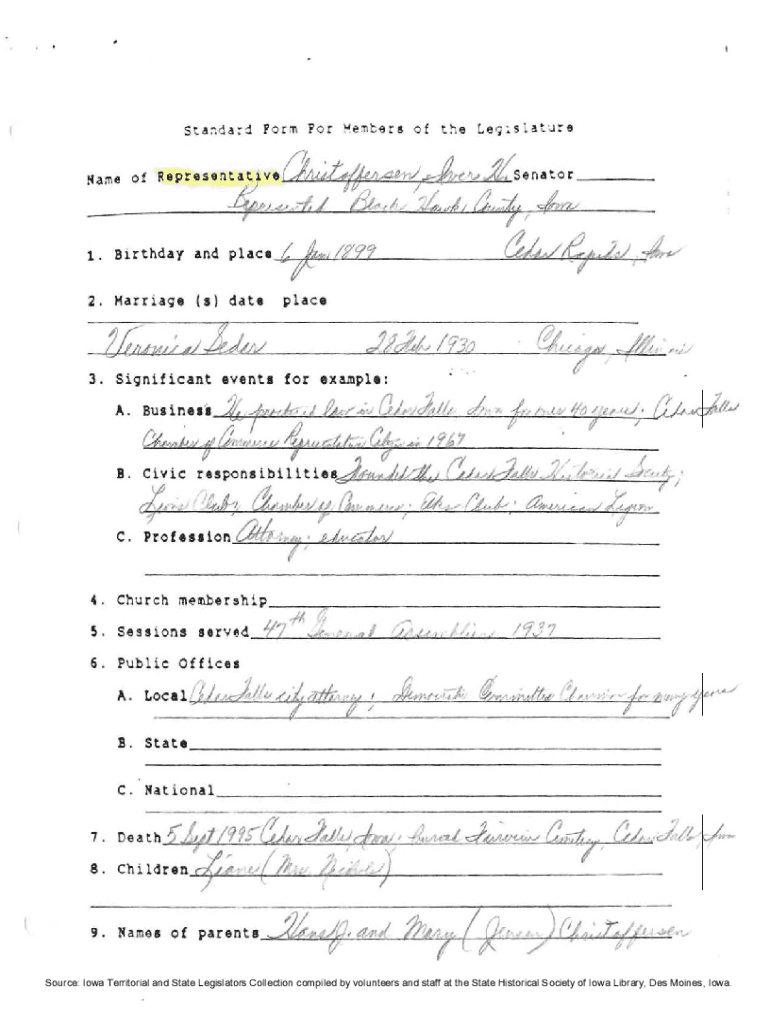 Standard Form For Members of the Legislature
Name of Representative Christoffersen, Iver H. Senator
Represented Black Hawk County, Iowa
1. Birthday and place 6 Jan 1899 Cedar Rapids, Iowa
2. Marriage (s) date place
Veronica Sedar 28 Feb 1930 Chicago, Illinois
3. Significant events for example:
A. Business He practiced law in Cedar Falls, Iowa for over 40 years; Cedar Falls
Chamber of Commerce Representative in 1967
B. Civic responsibilities Founded the Cedar Falls Historical Society;
Lions Club; Chamber of Commerce; Club; American Legion
C. Profession Attorney; educator
4. Church membership
5. Sessions served 47th General Assemblies 1937
6. Public Offices
A. Local Cedar Falls city attorney; Democratic Committee Chairman for many years
B. State
C. National
7. Death 5 Sept 1995 Cedar Falls, Iowa; burial Fairview Cemetery, Cedar Falls, Iowa
8. Children (Mrs. Nichols)
9. Names of parents Hans J. and Mary (Jensen) Christoffersen
Source: Iowa Territorial and State Legislators Collection compiled by volunteers and staff at the State Historical Society of Iowa Library, Des Moines, Iowa.